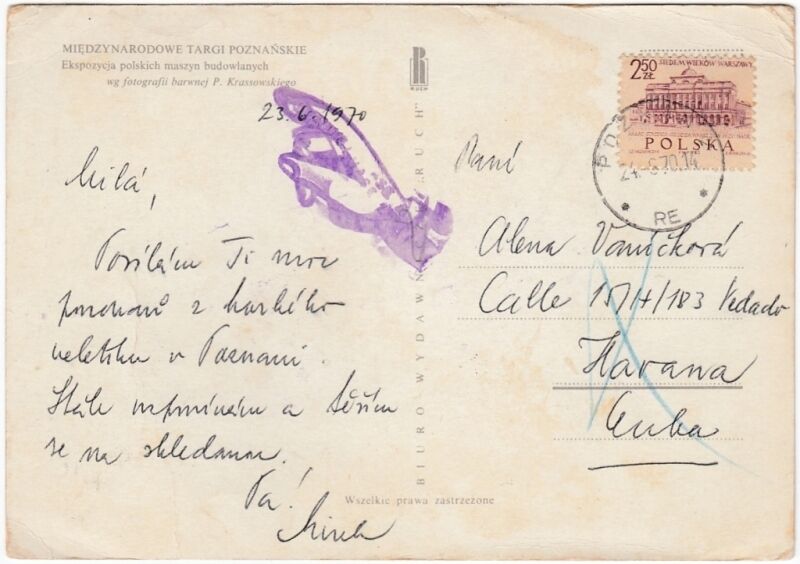 MIĘDZYNARODOWE TARGI POZNAŃSKIE
Ekspozycja polskich maszyn budowlanych
wg fotografii barwnej P. Krassowskiego
RUCH
23.6.1970
Milá,
Posílám Ti moc
pozdravů z horkého
veletrhu v Poznani.
Stále vzpomínám a těším
se na shledanou.
Pa!
Mirek
BIURO WYDAWN „RUCH"
Wszelkie prawa zastrzeżone
2.50 ZŁ
SIEDEM WIEKÓW WARSZAWY
POLSKA
POZ
24.6.70.14
RE
Paní
Alena Vaníčková
Calle 15/H/183 Vedado
Havana
Cuba